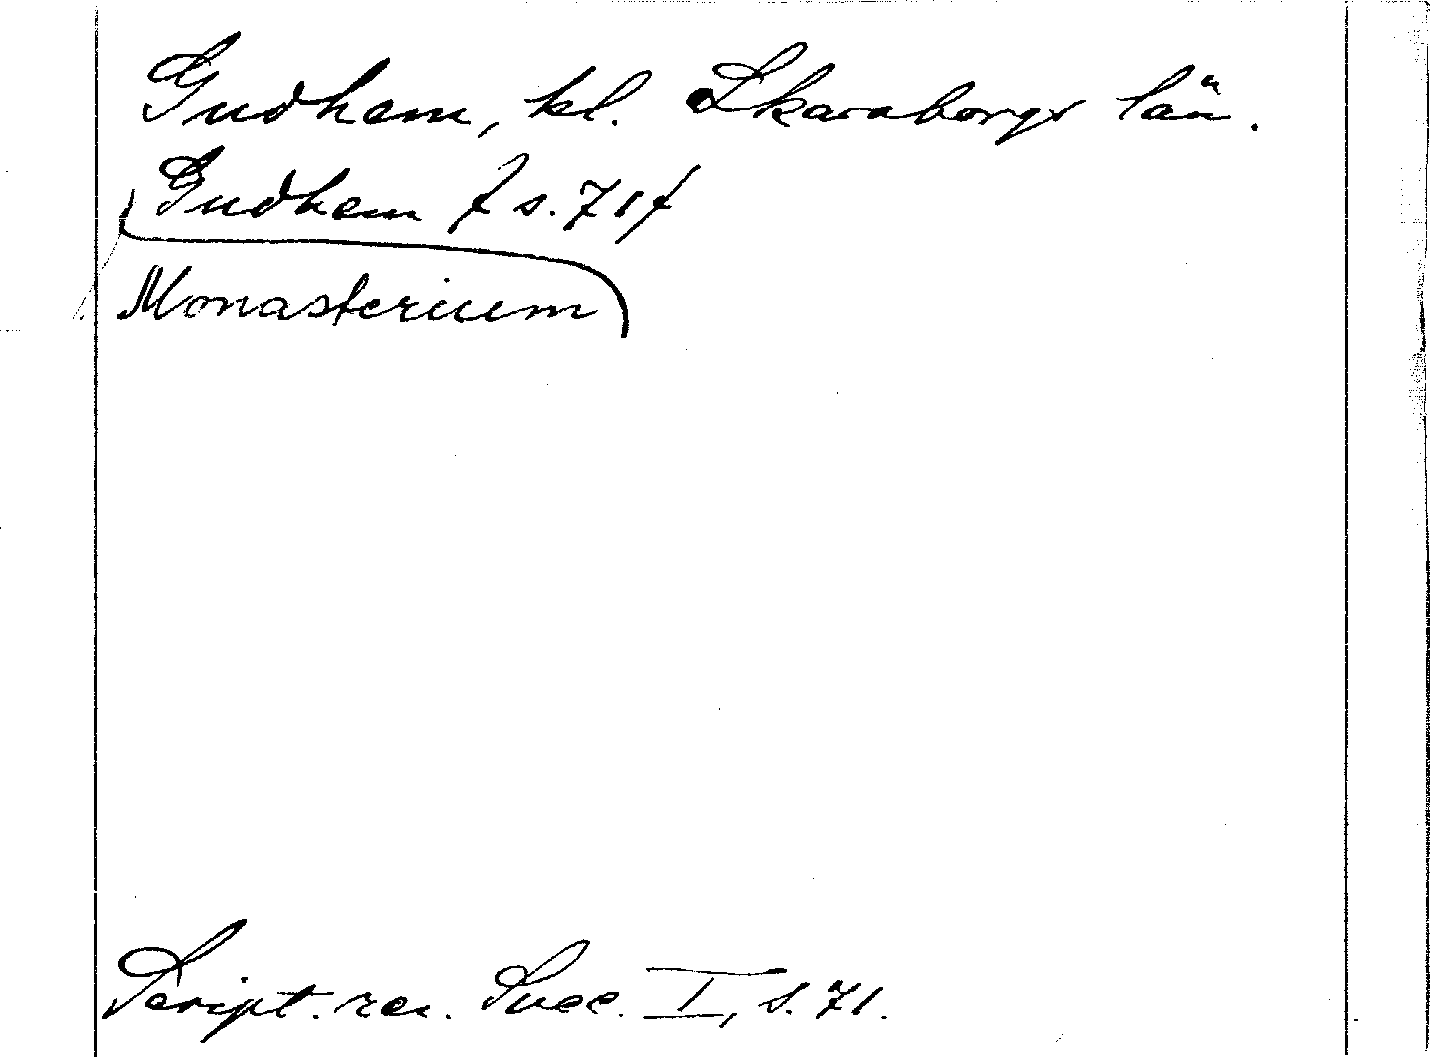 Gudhem, kl. Skaraborgs län.
Gudhem f s. 71 f
Monasterium
Script. rer. Svec. I, s. 71.